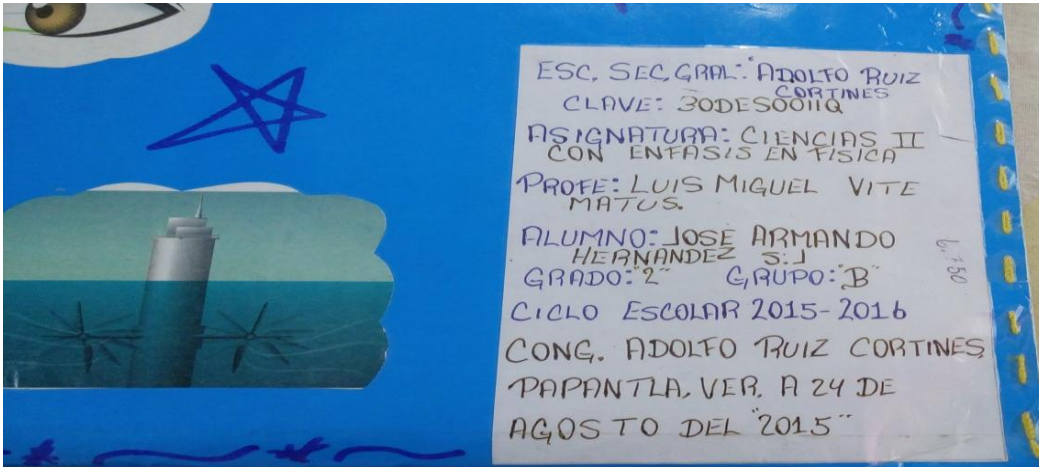 ESC. SEC. GRAL: "ADOLFO RUIZ
CORTINES
CLAVE: 30DES0011Q
ASIGNATURA: CIENCIAS II
CON ENFASIS EN FISICA
PROFE: LUIS MIGUEL VITE
MATUS.
ALUMNO: JOSE ARMANDO
HERNANDEZ S:J
GRADO: "2" GRUPO: "B"
CICLO ESCOLAR 2015-2016
CONG. ADOLFO RUIZ CORTINES
PAPANTLA, VER. A 24 DE
AGOSTO DEL "2015"